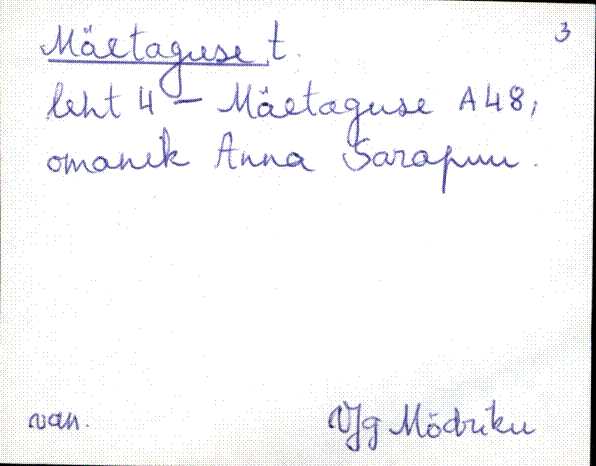 3
Mäetaguse t.
leht 4 – Mäetaguse A48,
omanik Anna Sarapuu.
van.
VJg Mõdriku